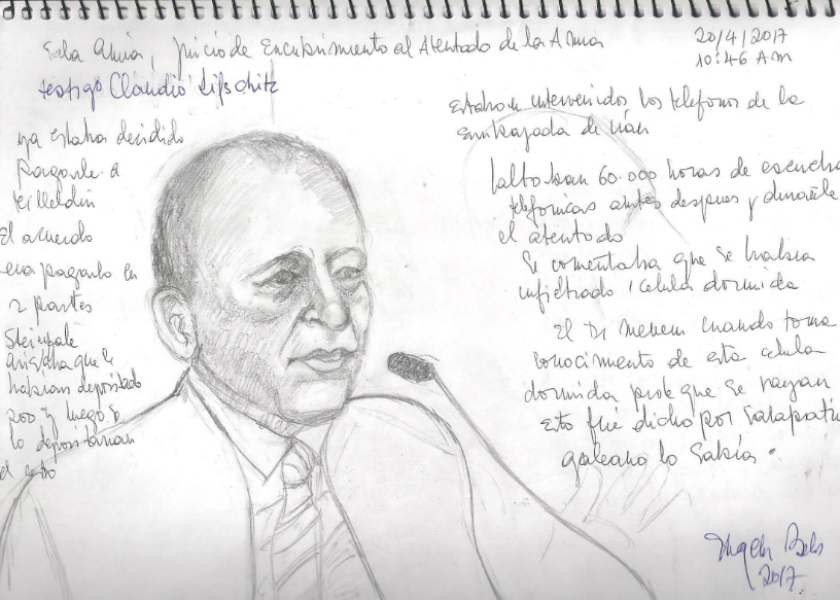 Sala Amia, juicio de Encubrimiento al Atentado de la Amia
20/4/2017
10:46 AM
testigo Claudio Lifschitz
ya estaba decidido
pagarle a
telleldin
El acuerdo
era pagarlo en
2 partes
avisaba que le
habian depositado
200 y luego
lo depositarian
el
Estaban intervenidos los telefonos de la
Embajada de iran
faltaban 60.000 horas de escucha
telefonicas antes despues y durante
el atentado
Se comentaba que se habia
infiltrado 1 celula dormida
El Dr Menem cuando toma
conocimiento de esta celula
dormida pide que se vayan
Esto fué dicho por
galeano lo Sabía.
2017.